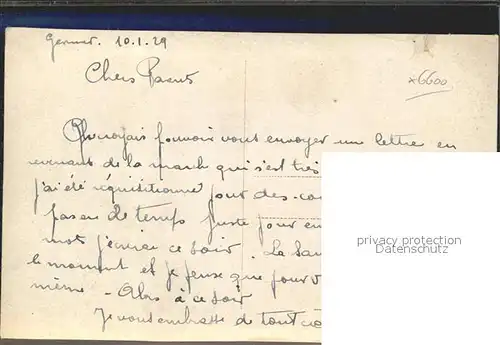 Germer. 10.1.29
Chers Parents
x6600
Je croyais pouvoir vous envoyer un lettre en
revenant de la march qui s'est très
j'ai été réquisitionné pour des
pas eu de temps juste pour en
mot j'écrirai ce soir. La
le moment et je pense que pour v
même - Alors à ce soir
Je vous embrasse de tout
privacy protection
Datenschutz